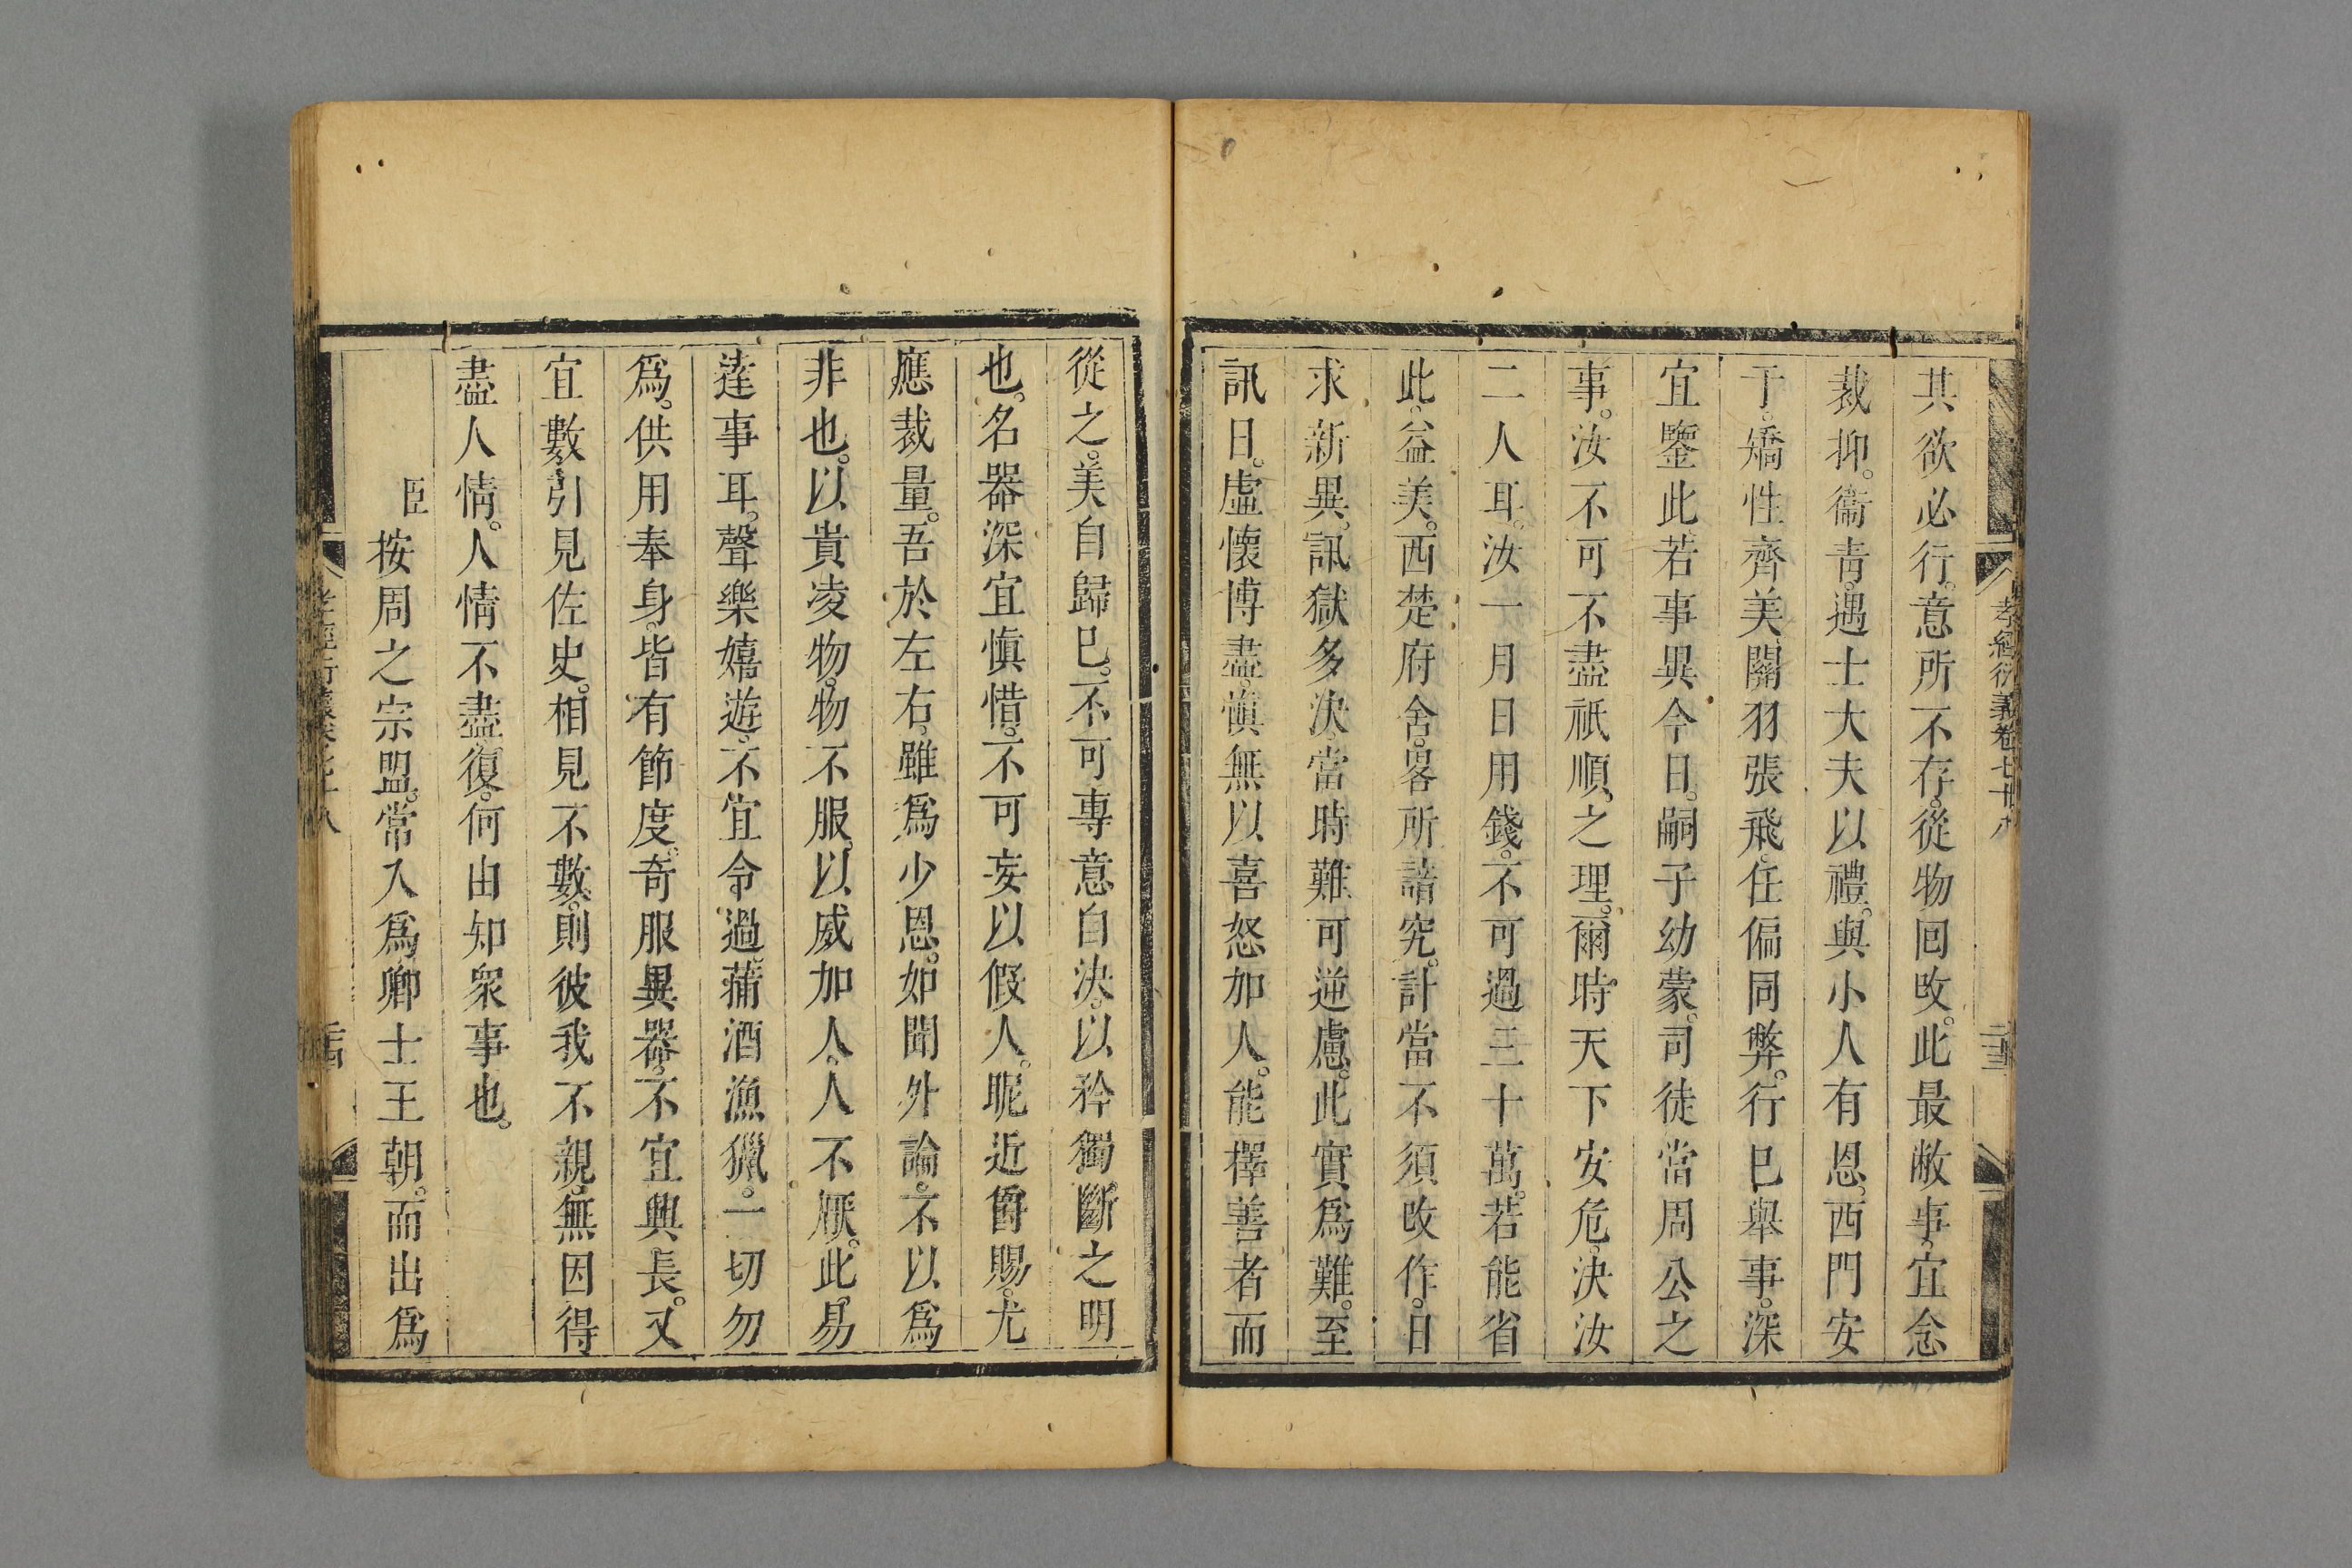 孝經衍義卷七十八
二十三
其欲必行。意所不存。從物回改。此最敝事。宜念
裁抑。衞青。遇士大夫以禮。與小人有恩。西門安
于。矯性齊美。關羽張飛。任偏同弊。行巳舉事。深
宜鑒此。若事異今日。嗣子幼蒙。司徒當周公之
事。汝不可不盡祇順。之理。爾時天下安危。決汝
二人耳。汝一月日用錢。不可過三十萬。若能省
此。益美。西楚府舍。畧所諳究。計當不須改作。日
求新異。訊獄多決。當時難可逆慮。此實爲難。至
訊日。虛懷博盡。愼無以喜怒加人。能擇善者而
從之。美自歸巳。不可專意自決。以矜獨斷之明
也。名器深宜愼惜。不可妄以假人。昵近爵賜。尤
應裁量。吾於左右。雖爲少恩。如聞外論。不以爲
非也。以貴凌物。物不服。以威加人。人不厭。此。易
達事耳。聲樂嬉遊。不宜令過。蒱酒漁獵。一切勿
爲。供用奉身。皆有節度。奇服異器。不宜興長。又
宜數引見佐史。相見不數。則彼我不親。無因得
盡人情。人情不盡。復何由知衆事也。
臣按周之宗盟。常入爲卿士王朝。而出爲